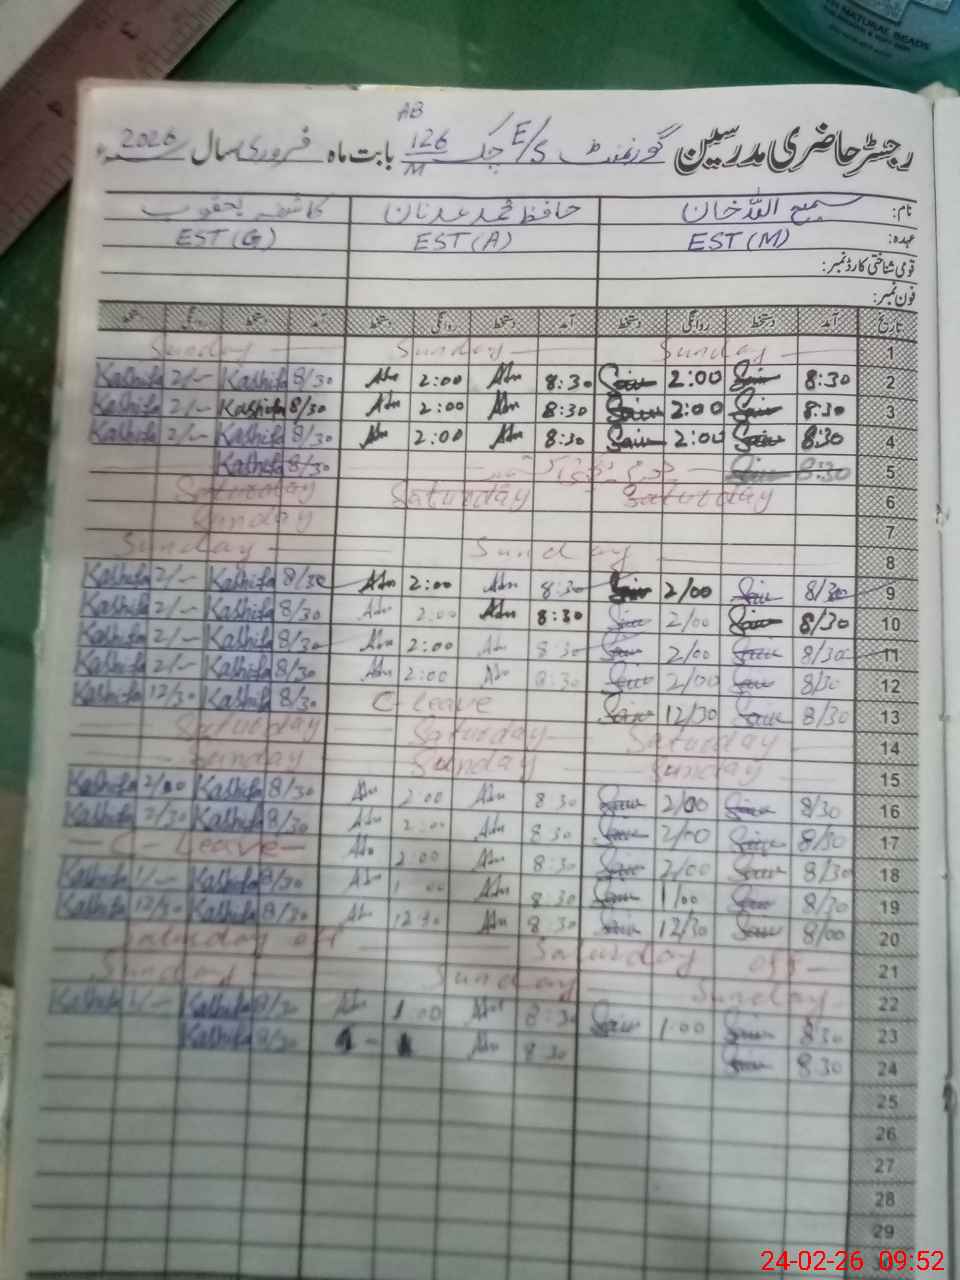 NATURAL BEADS
رجسٹر حاضری مدرسین گورنمنٹ E/S چک 126 AB/M بابت ماہ فروری سال 2026ء
نام: سمیع اللہ خان حافظ محمد عدنان
عہدہ: EST (M) EST (A) EST (G)
قومی شناختی کارڈ نمبر:
فون نمبر:
تاریخ آمد دستخط روانگی دستخط آمد دستخط روانگی دستخط آمد دستخط روانگی دستخط
Sunday Sunday Sunday 1
Kashifa 2/- Kashifa 8/30 Adn 2:00 Adn 8:30 2:00 8:30 2
Kashifa 2/- Kashifa 8/30 Adn 2:00 Adn 8:30 2:00 8:30 3
Kashifa 2/- Kashifa 8/30 Adn 2:00 Adn 8:30 2:00 8:30 4
Kashifa 8/30 8:30 5
Saturday Saturday Saturday 6
Sunday 7
Sunday Sunday 8
Kashifa 2/- Kashifa 8/30 Adn 2:00 Adn 8:30 2/00 8/30 9
Kashifa 2/- Kashifa 8/30 Adn 2:00 Adn 8:30 2/00 8/30 10
Kashifa 2/- Kashifa 8/30 Adn 2:00 Adn 8:30 2/00 8/30 11
Kashifa 2/- Kashifa 8/30 Adn 2:00 Adn 8:30 2/00 8/30 12
Kashifa 12/30 Kashifa 8/30 C-Leave 12/30 8/30 13
Saturday Saturday Saturday 14
Sunday Sunday Sunday 15
Kashifa 2/00 Kashifa 8/30 Adn 2:00 Adn 8:30 2/00 8/30 16
Kashifa 2/30 Kashifa 8/30 Adn 2:00 Adn 8:30 2/00 8/30 17
C-Leave Adn 2:00 Adn 8:30 2/00 8/30 18
Kashifa 1/- Kashifa 8/30 Adn 1:00 Adn 8:30 1/00 8/30 19
Kashifa 12/30 Kashifa 8/30 Adn 12:30 Adn 8:30 12/30 8/00 20
Saturday off Saturday off 21
Sunday Sunday Sunday 22
Kashifa 1/- Kashifa 8/30 Adn 1:00 Adn 8:30 1:00 8:30 23
Kashifa 8/30 Adn 8:30 8:30 24
25
26
27
28
29
24-02-26 09:52